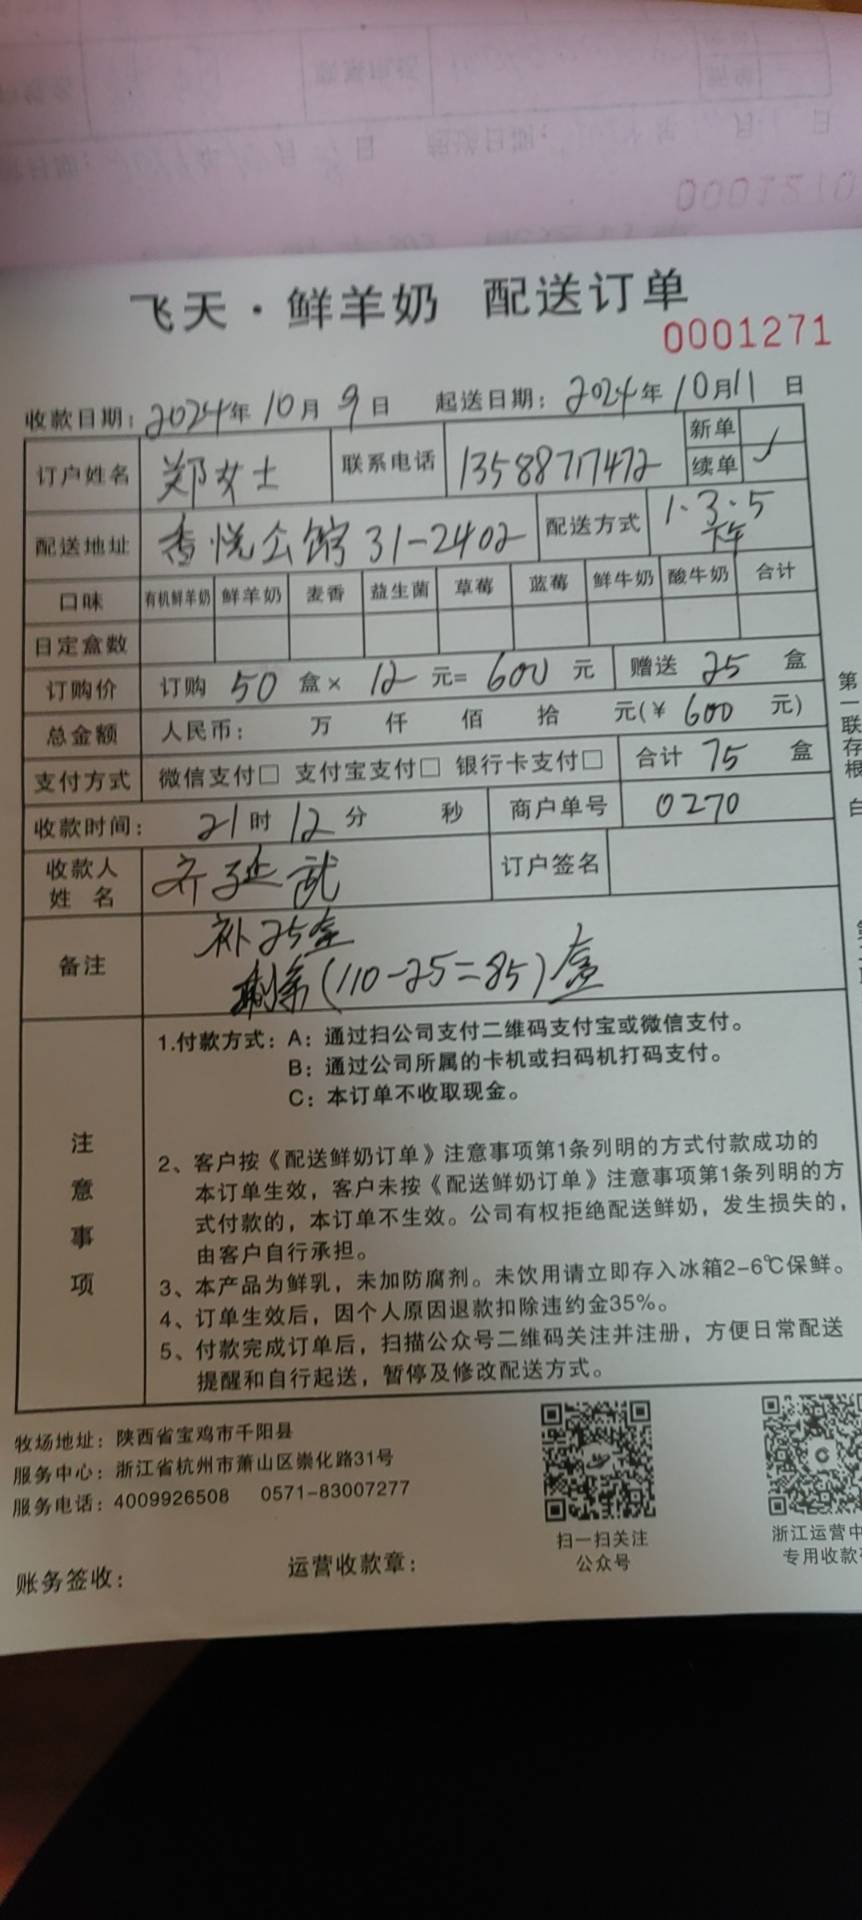 飞天·鲜羊奶 配送订单
0001271
收款日期：2024年10月9日 起送日期：2024年10月11日
订户姓名 郑女士 联系电话 13588717472 新单
续单 ✓
配送地址 香悦公馆31-2402 配送方式 1·3·5
下午
口味 有机鲜羊奶 鲜羊奶 麦香 益生菌 草莓 蓝莓 鲜牛奶 酸牛奶 合计
日定盒数
订购价 订购 50 盒× 12 元= 600 元 赠送 25 盒
总金额 人民币： 万 仟 佰 拾 元(￥600 元)
支付方式 微信支付□ 支付宝支付□ 银行卡支付□ 合计 75 盒
收款时间： 21时12分 秒 商户单号 0270
收款人
姓名 齐延武 订户签名
备注 补25盒
剩余(110-25=85)盒
注意事项
1.付款方式：A：通过扫公司支付二维码支付宝或微信支付。
B：通过公司所属的卡机或扫码机打码支付。
C：本订单不收取现金。
2、客户按《配送鲜奶订单》注意事项第1条列明的方式付款成功的
本订单生效，客户未按《配送鲜奶订单》注意事项第1条列明的方
式付款的，本订单不生效。公司有权拒绝配送鲜奶，发生损失的，
由客户自行承担。
3、本产品为鲜乳，未加防腐剂。未饮用请立即存入冰箱2-6℃保鲜。
4、订单生效后，因个人原因退款扣除违约金35%。
5、付款完成订单后，扫描公众号二维码关注并注册，方便日常配送
提醒和自行起送，暂停及修改配送方式。
第一联存根 白
牧场地址：陕西省宝鸡市千阳县
服务中心：浙江省杭州市萧山区崇化路31号
服务电话：4009926508 0571-83007277
扫一扫关注
公众号
浙江运营中
专用收款
账务签收： 运营收款章：